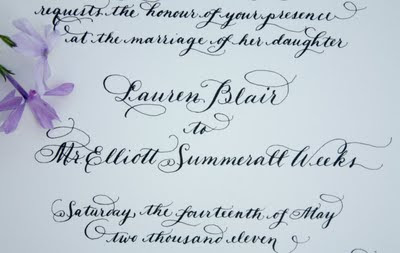 requests the honour of your presence
at the marriage of her daughter
Lauren Blair
to
Mr. Elliott Summeratt Weeks
Saturday, the fourteenth of May
two thousand eleven